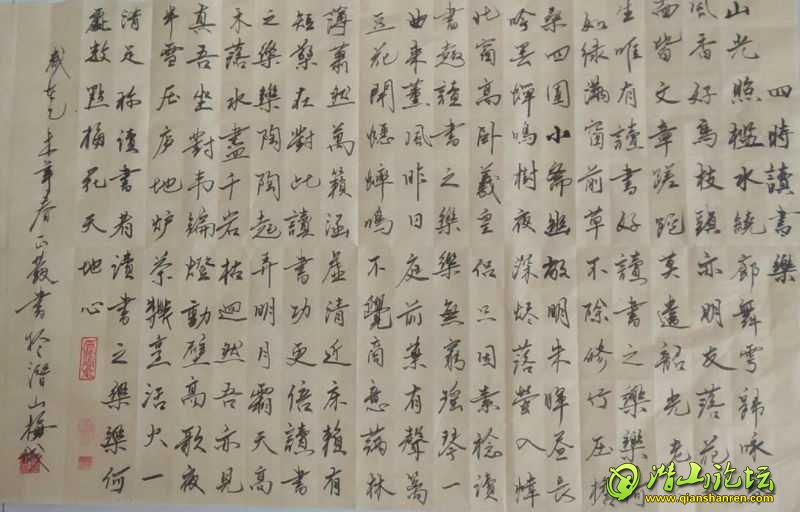 四時讀書樂
山光照檻水繞廊舞雩歸咏
風香好鳥枝頭亦朋友落花
面皆文章蹉跎莫遣韶光老
生唯有讀書好讀書之樂樂何
如綠滿窗前草不除修竹压檐
桑四圍小齋幽敞明朱暉晝長
吟罢蟬鳴樹夜深烬落螢入幃
北窗高卧羲皇侣只因素稔讀
書趣讀書之樂樂無窮瑶琴一
曲来薰風昨日庭前葉有聲篱
豆花開蟋蟀鳴不覺商意滿林
薄蕭然萬籟涵虛清近床賴有
短檠在對此讀書功更倍讀書
之樂樂陶陶起弄明月霜天高
木落水盡千岩枯迥然吾亦見
真吾坐對韦編燈動壁高歌夜
半雪压庐地炉茶鼎烹活火一
清足称讀書者讀書之樂樂何
處數點梅花天地心
未年春正發書於潛山梅城
潜山论坛
www.qianshanren.com